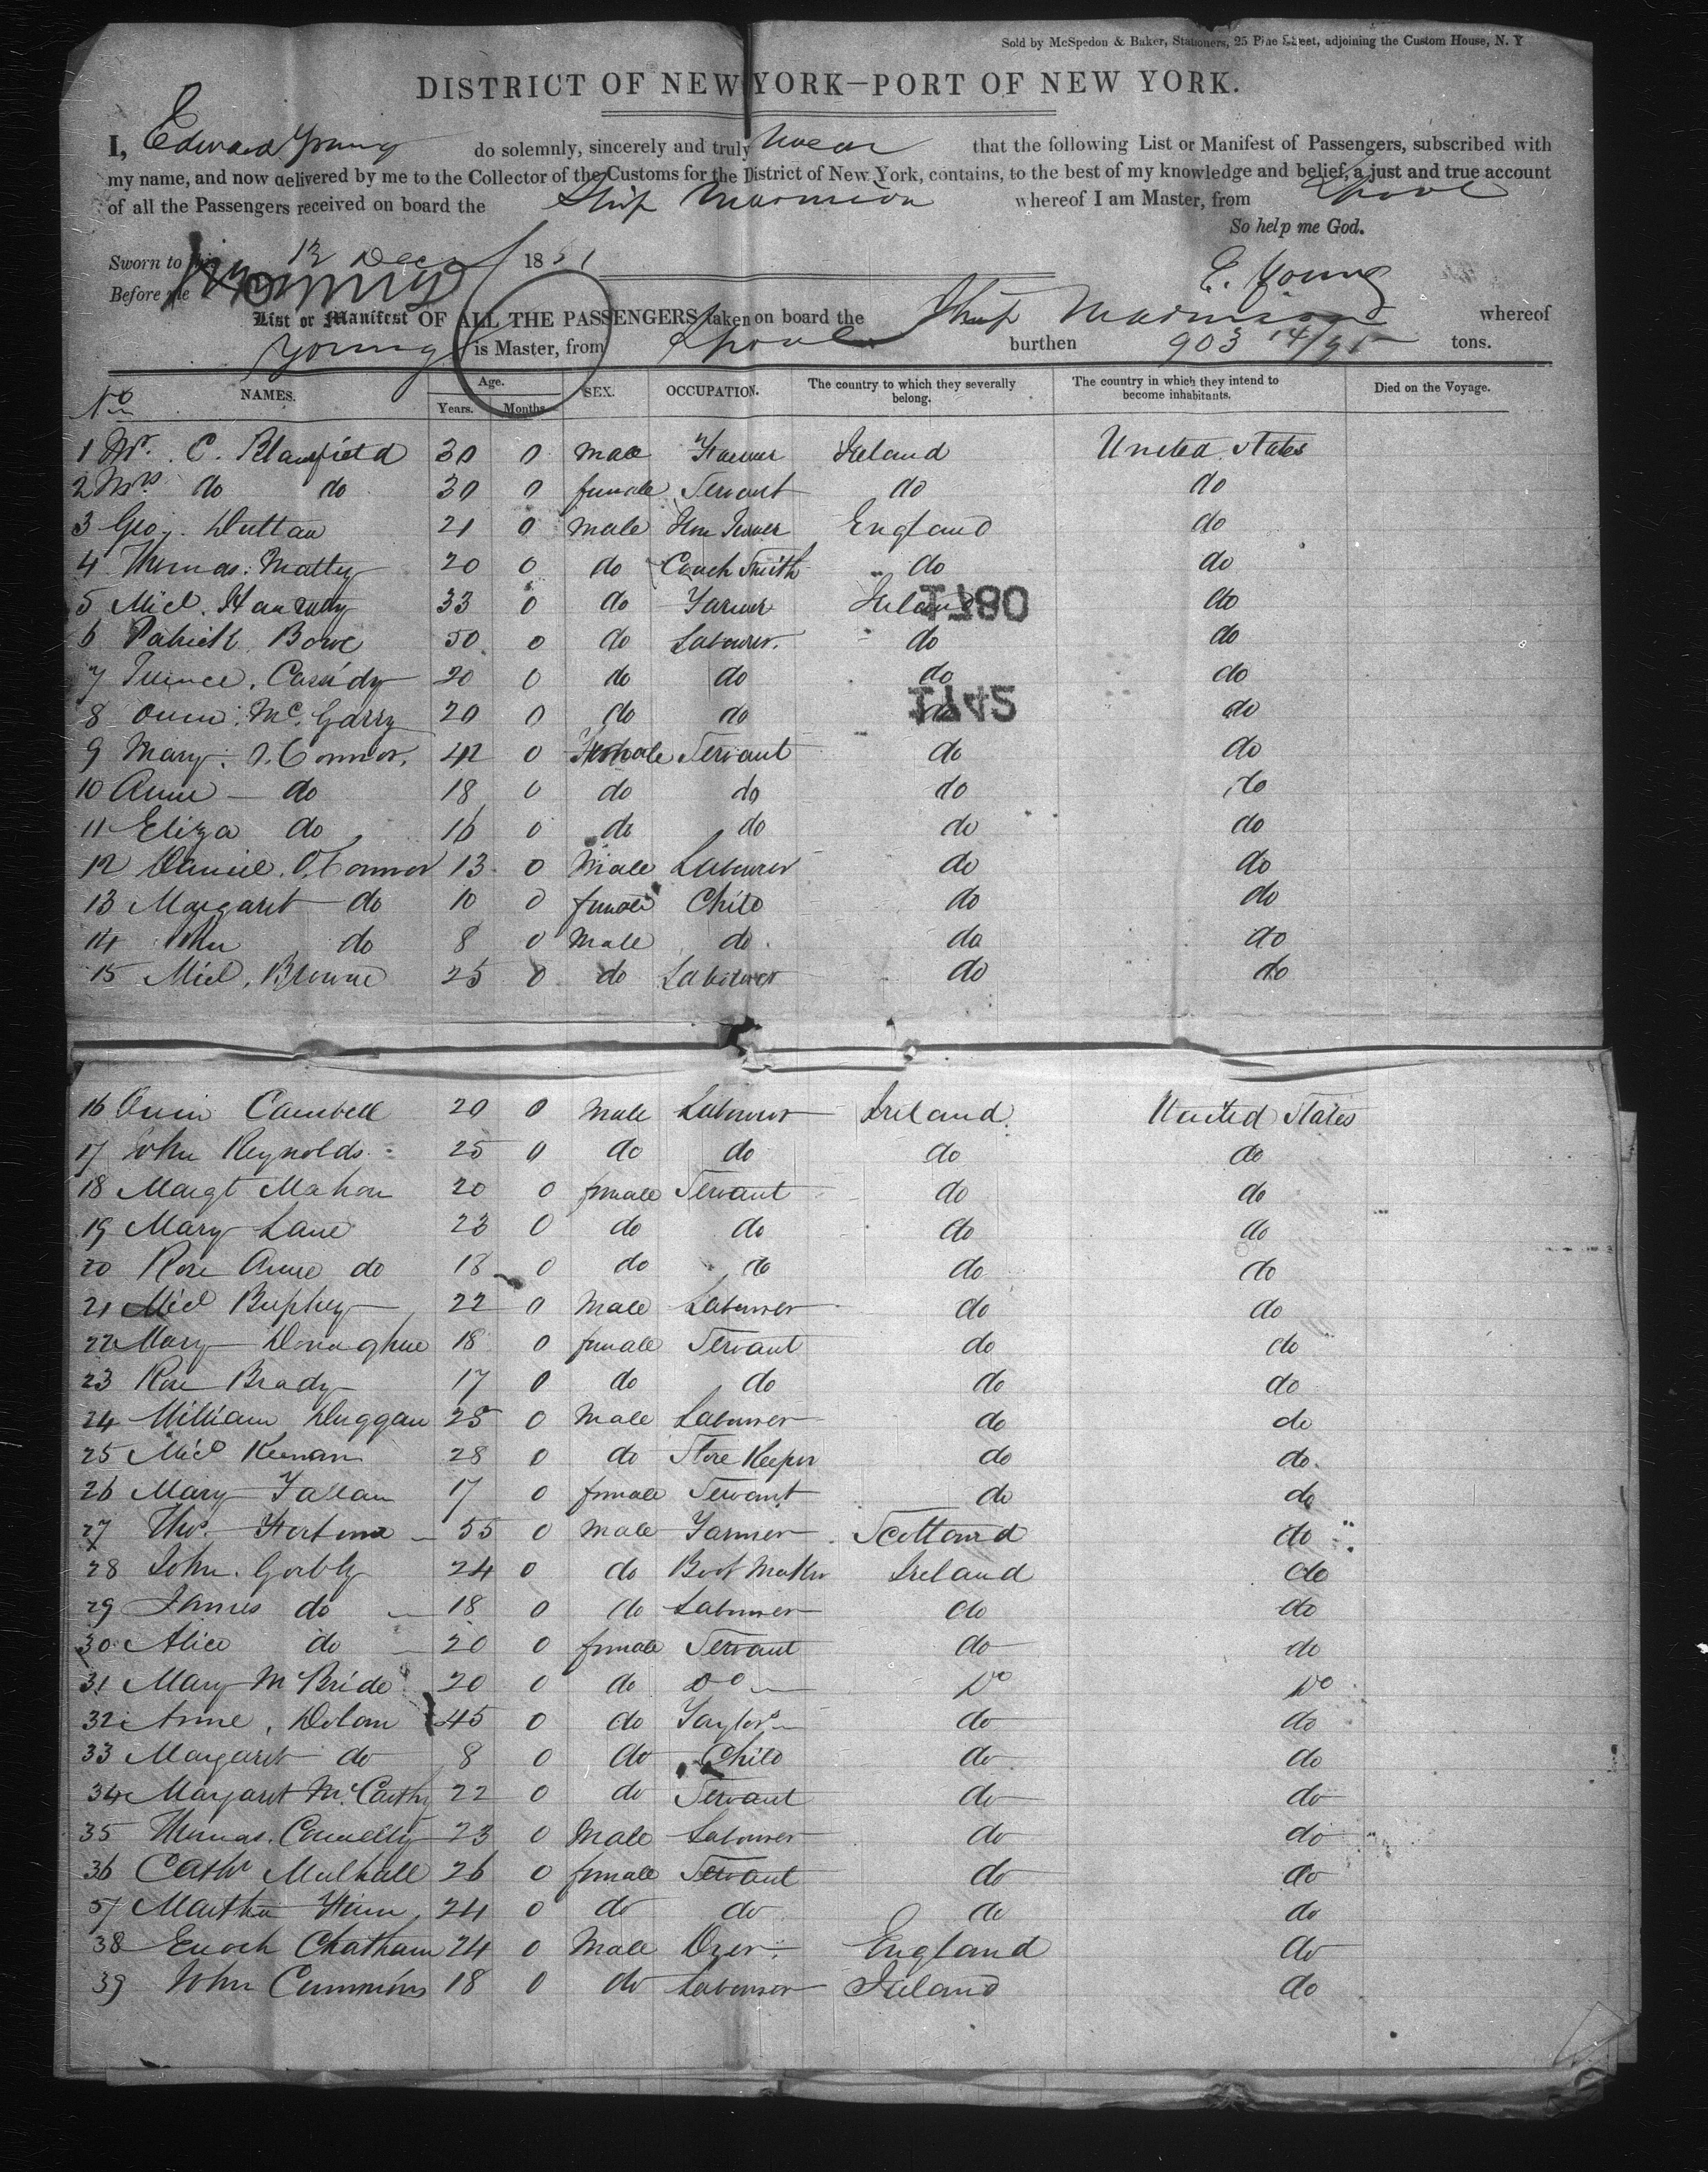 Sold by McSpedon & Baker, Stationers, 25 Pine Street, adjoining the Custom House, N. Y
DISTRICT OF NEW YORK—PORT OF NEW YORK.
I, Edward Young do solemnly, sincerely and truly swear that the following List or Manifest of Passengers, subscribed with
my name, and now delivered by me to the Collector of the Customs for the District of New York, contains, to the best of my knowledge and belief, a just and true account
of all the Passengers received on board the Ship Marmion whereof I am Master, from Lpool
So help me God.
Sworn to this 12 Decr 1851
E. Young
Before me
List or Manifest OF ALL THE PASSENGERS taken on board the Ship Marmion whereof
Young is Master, from Lpool burthen 903 14/95 tons.
No NAMES. Age. Years. Months SEX. OCCUPATION. The country to which they severally belong. The country in which they intend to become inhabitants. Died on the Voyage.
1 Mr. C. Blanfield 30 0 male Farmer Ireland United States
2 Mrs do do 30 0 female Servant do do
3 Geo. Duttan 21 0 male England do
4 Thomas Matley 20 0 do Coach Smith do do
5 Micl. 33 0 do Farmer Ireland do
1780
6 Patrick Bowe 50 0 do Labourer. do do
7 Terence Cassidy 20 0 do do do do
1742
8 Owen McGarry 20 0 do do do do
9 Mary O.Connor, 42 0 Female Servant do do
10 Anne do 18 0 do do do do
11 Eliza do 16 0 do do do do
12 Daniel O,Connor 13 0 Male Labourer do do
13 Margaret do 10 0 female Child do do
14 John do 8 0 Male do do do
15 Micl. Browne 25 0 do Labourer do do
16 Owen Cambell 20 0 Male Labourer Ireland United States
17 John Reynolds 25 0 do do do do
18 Margt Mahon 20 0 female Servant do do
19 Mary Lane 23 0 do do do do
20 Rose Anne do 18 0 do do do do
21 Micl 22 0 Male Labourer do do
22 Mary Donaghue 18 0 female Servant do do
23 Rose Brady 17 0 do do do do
24 William Duggan 25 0 Male Labourer do do
25 Micl Keenan 28 0 do Store Keeper do do
26 Mary Fallan 17 0 female Servant do do
27 Thos. 55 0 Male Farmer Scotland do
28 John 24 0 do Boot Maker Ireland do
29 James do 18 0 do Labourer do do
30 Alice do 20 0 female Servant do do
31 Mary McBride 20 0 do Do Do Do
32 Anne Dolan 45 0 do Taylor do do
33 Margaret do 8 0 do Child do do
34 Margaret McCarthy 22 0 do Servant do do
35 Thomas Connelly 23 0 Male Labourer do do
36 Cathr Mulhall 26 0 female Servant do do
37 Martha 24 0 do do do do
38 Enoch Chatham 24 0 Male Dyer England do
39 John Cummins 18 0 do Labourer Ireland do